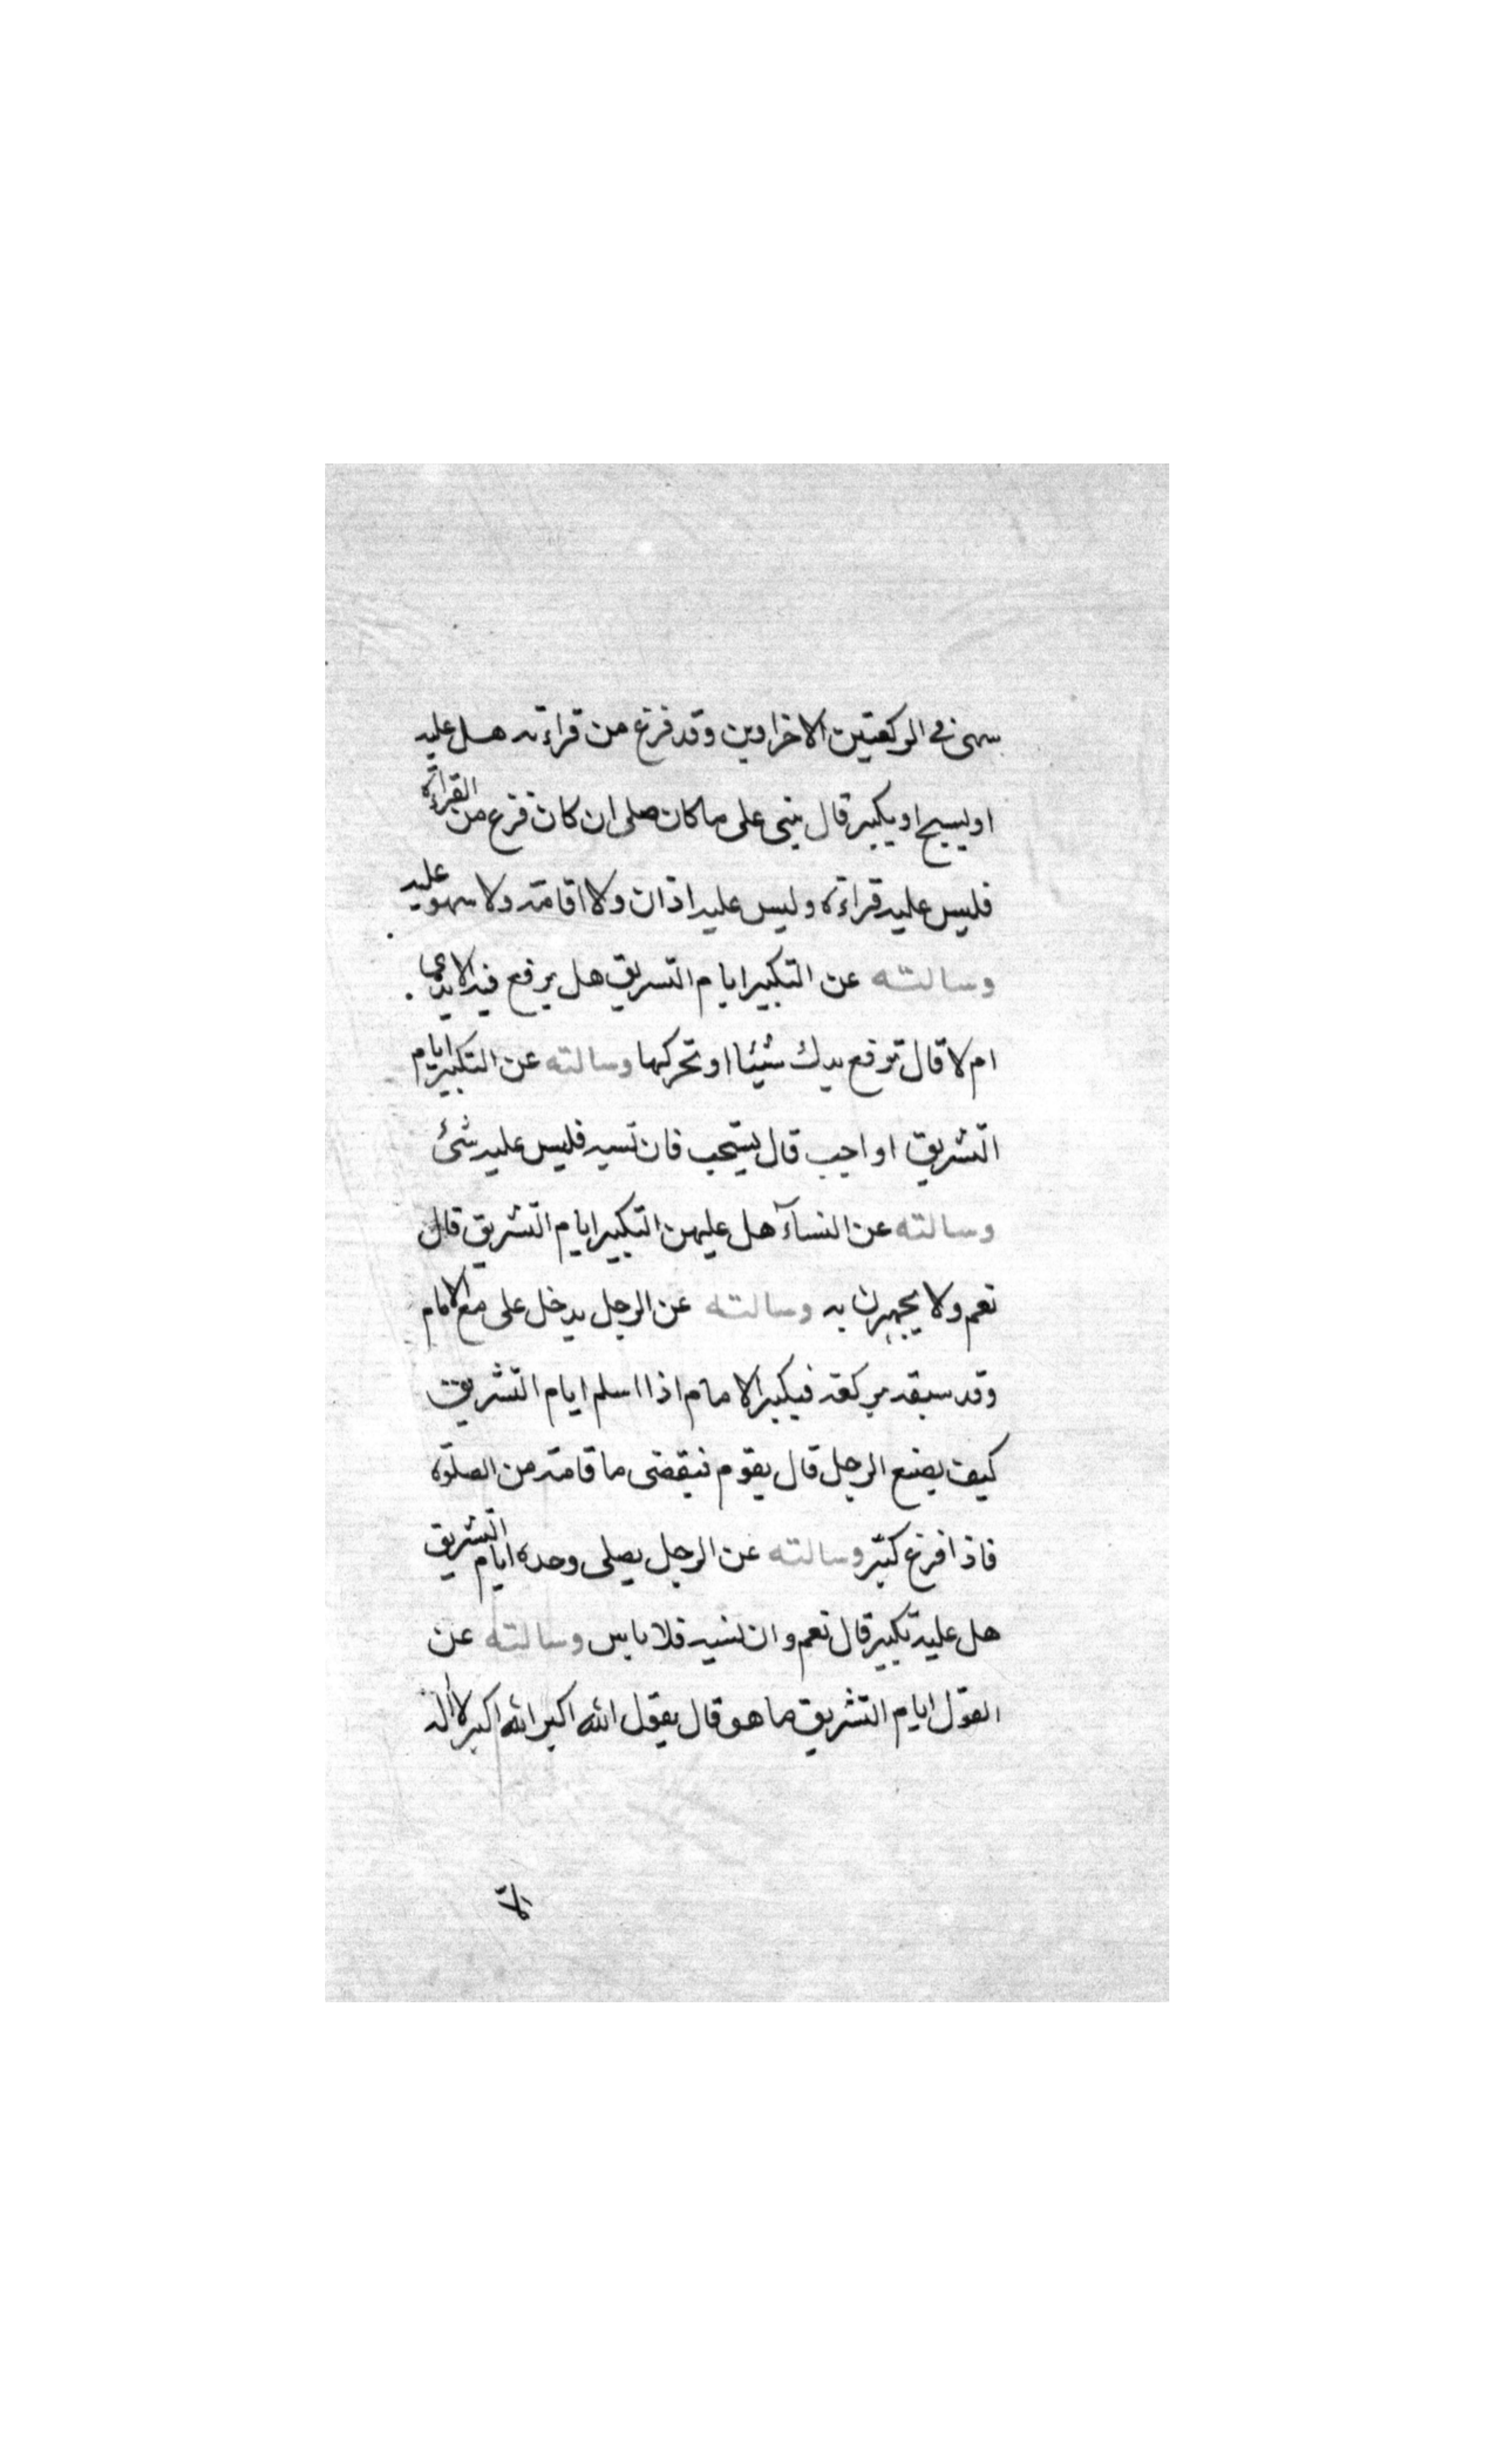 سهى في الركعتين الاخراوين وقد فرغ من قراءته هل عليه
او يسبح او يكبر قال يبنى على ما كان صلى ان كان فرغ من القراءة
فليس عليه قراءة وليس عليه اذان ولا اقامة ولا سهو عليه
وسالته عن التكبير ايام التسريق هل يرفع فيه الايدى
ام لا قال ترفع يدك شيئا او تحركها وسالته عن التكبير ايام
التشريق اواجب قال يستحب فان نسيه فليس عليه شئ
وسالته عن النسآء هل عليهن التكبير ايام التشريق قال
نعم ولا يجهرن به وسالته عن الرجل يدخل على مع الامام
وقد سبقه بركعة فيكبر الامام اذا اسلم ايام التشريق
كيف يصنع الرجل قال يقوم فيقضى ما فاته من الصلوة
فاذا فرغ كبّر وسالته عن الرجل يصلى وحده ايام التشريق
هل عليه تكبير قال نعم وان نسيه فلا باس وسالته عن
القول ايام التشريق ما هو قال يقول الله اكبر الله اكبر لا اله
الا